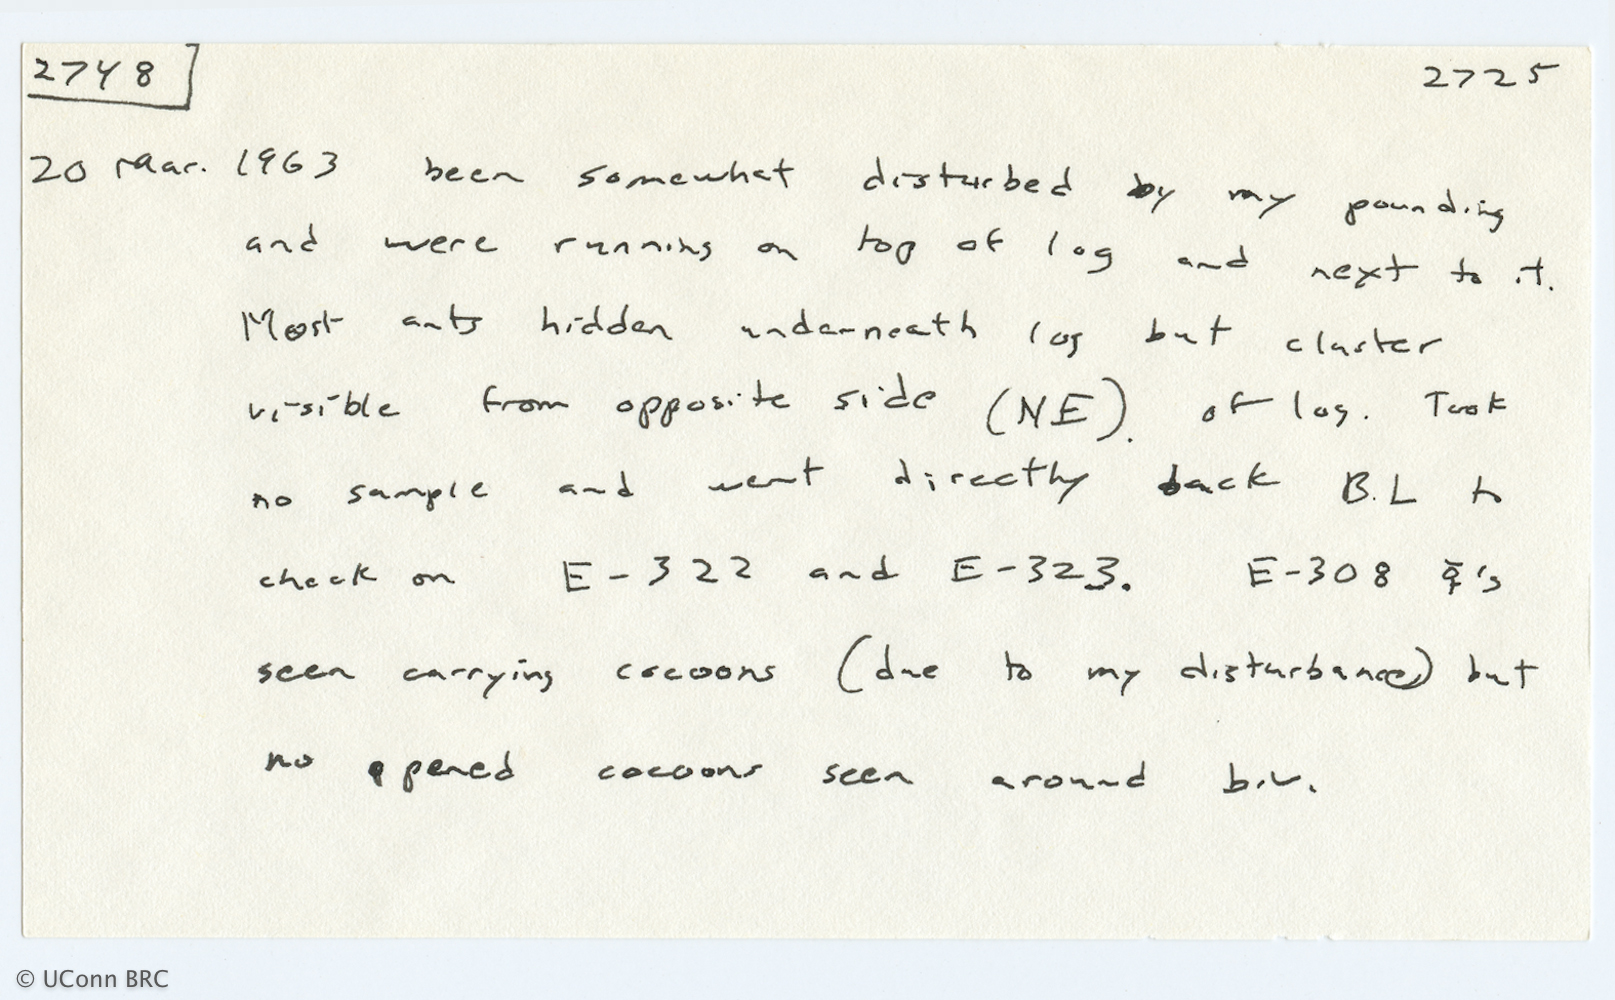 2748 2725
20 Mar. 1963 been somewhat disturbed by my pounding
and were running on top of log and next to it.
Most ants hidden underneath log but cluster
visible from opposite side (NE). of log. Took
no sample and went directly back B.L to
check on E-322 and E-323. E-308 ☿'s
seen carrying cocoons (due to my disturbance) but
no opened cocoons seen around biv.
© UConn BRC